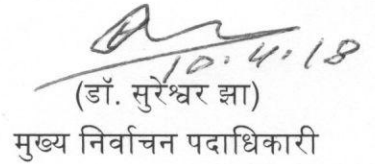 10.4.18
(डॉ. सुरेश्वर झा)
मुख्य निर्वाचन पदाधिकारी